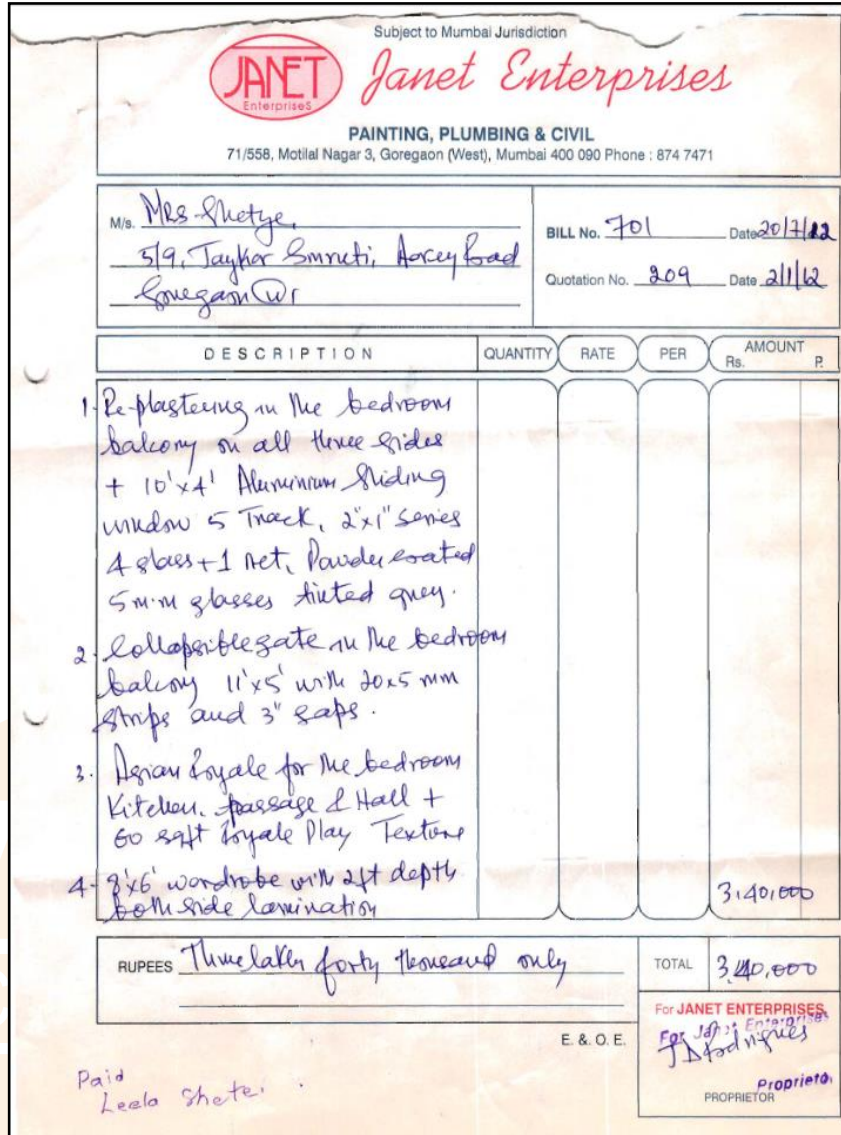 Subject to Mumbai Jurisdiction
JANET
EnterpriseS
Janet Enterprises
PAINTING, PLUMBING & CIVIL
71/558, Motilal Nagar 3, Goregaon (West), Mumbai 400 090 Phone : 874 7471
M/s. Mrs Shetye,
5/9, Smruti, Aarey Road
Goregaon (W)
BILL No. 701 Date 20/7/12
Quotation No. 209 Date 2/1/12
DESCRIPTION QUANTITY RATE PER AMOUNT
Rs. P.
1. Re-plastering in the bedroom
balcony on all three sides
+ 10'x4' Aluminium Sliding
window 5 Track, 2"x1" series
4 glass + 1 net, Powder coated
5 m.m glasses tinted grey.
2. Collapsible gate in the bedroom
balcony 11'x5' with 20x5 mm
strips and 3" gaps.
3. Asian Royale for the bedroom
Kitchen, passage & Hall +
60 sqft Royale Play Texture
4. 8'x6' wardrobe with 2ft depth
both side lamination 3,40,000
RUPEES Three lakhs forty thousand only
TOTAL 3,40,000
For JANET ENTERPRISES,
For Janet Enterprises
E. & O. E.
Proprietor
PROPRIETOR
Paid
Leela